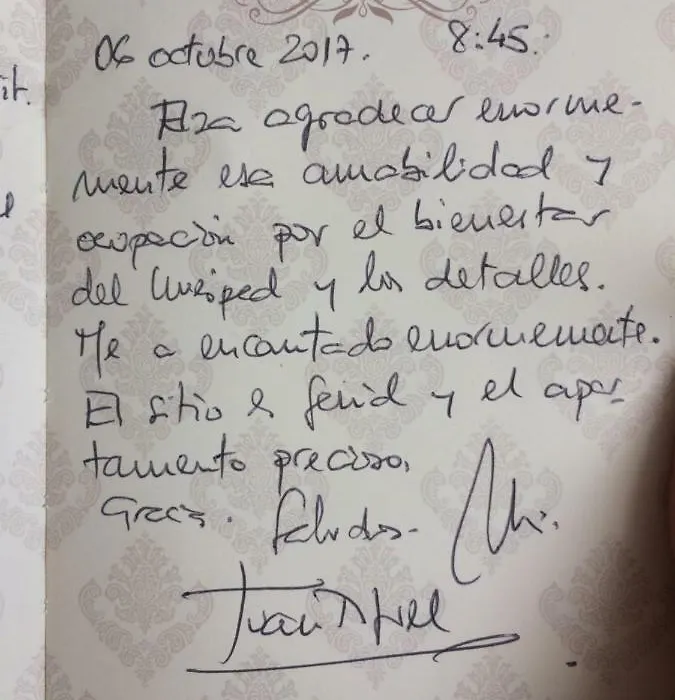 it.
06 octubre 2017. 8:45.
agradecer enorme-
mente esa amabilidad y
ocupación por el bienestar
del huesped y los detalles.
Me a encantado enormemente.
El sitio es genial y el apar-
tamento precioso,
Gracias. Saludos.
Juan